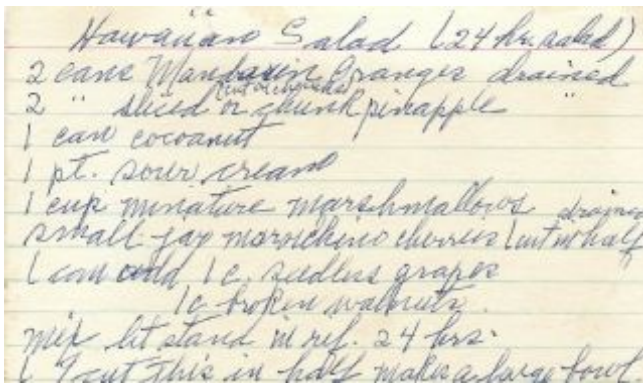 Hawaiian Salad (24 hr. salad)
2 cans Mandarin Oranges drained
2 " sliced (cut or chunked) or chunk pineapple "
1 can cocoanut
1 pt. sour cream
1 cup minature marshmallows
small jar marichino cherries (cut in half drained
(can add 1 c. seedless grapes
1 c broken walnuts
mix let stand in ref. 24 hrs.
( I cut this in half makes a large bowl